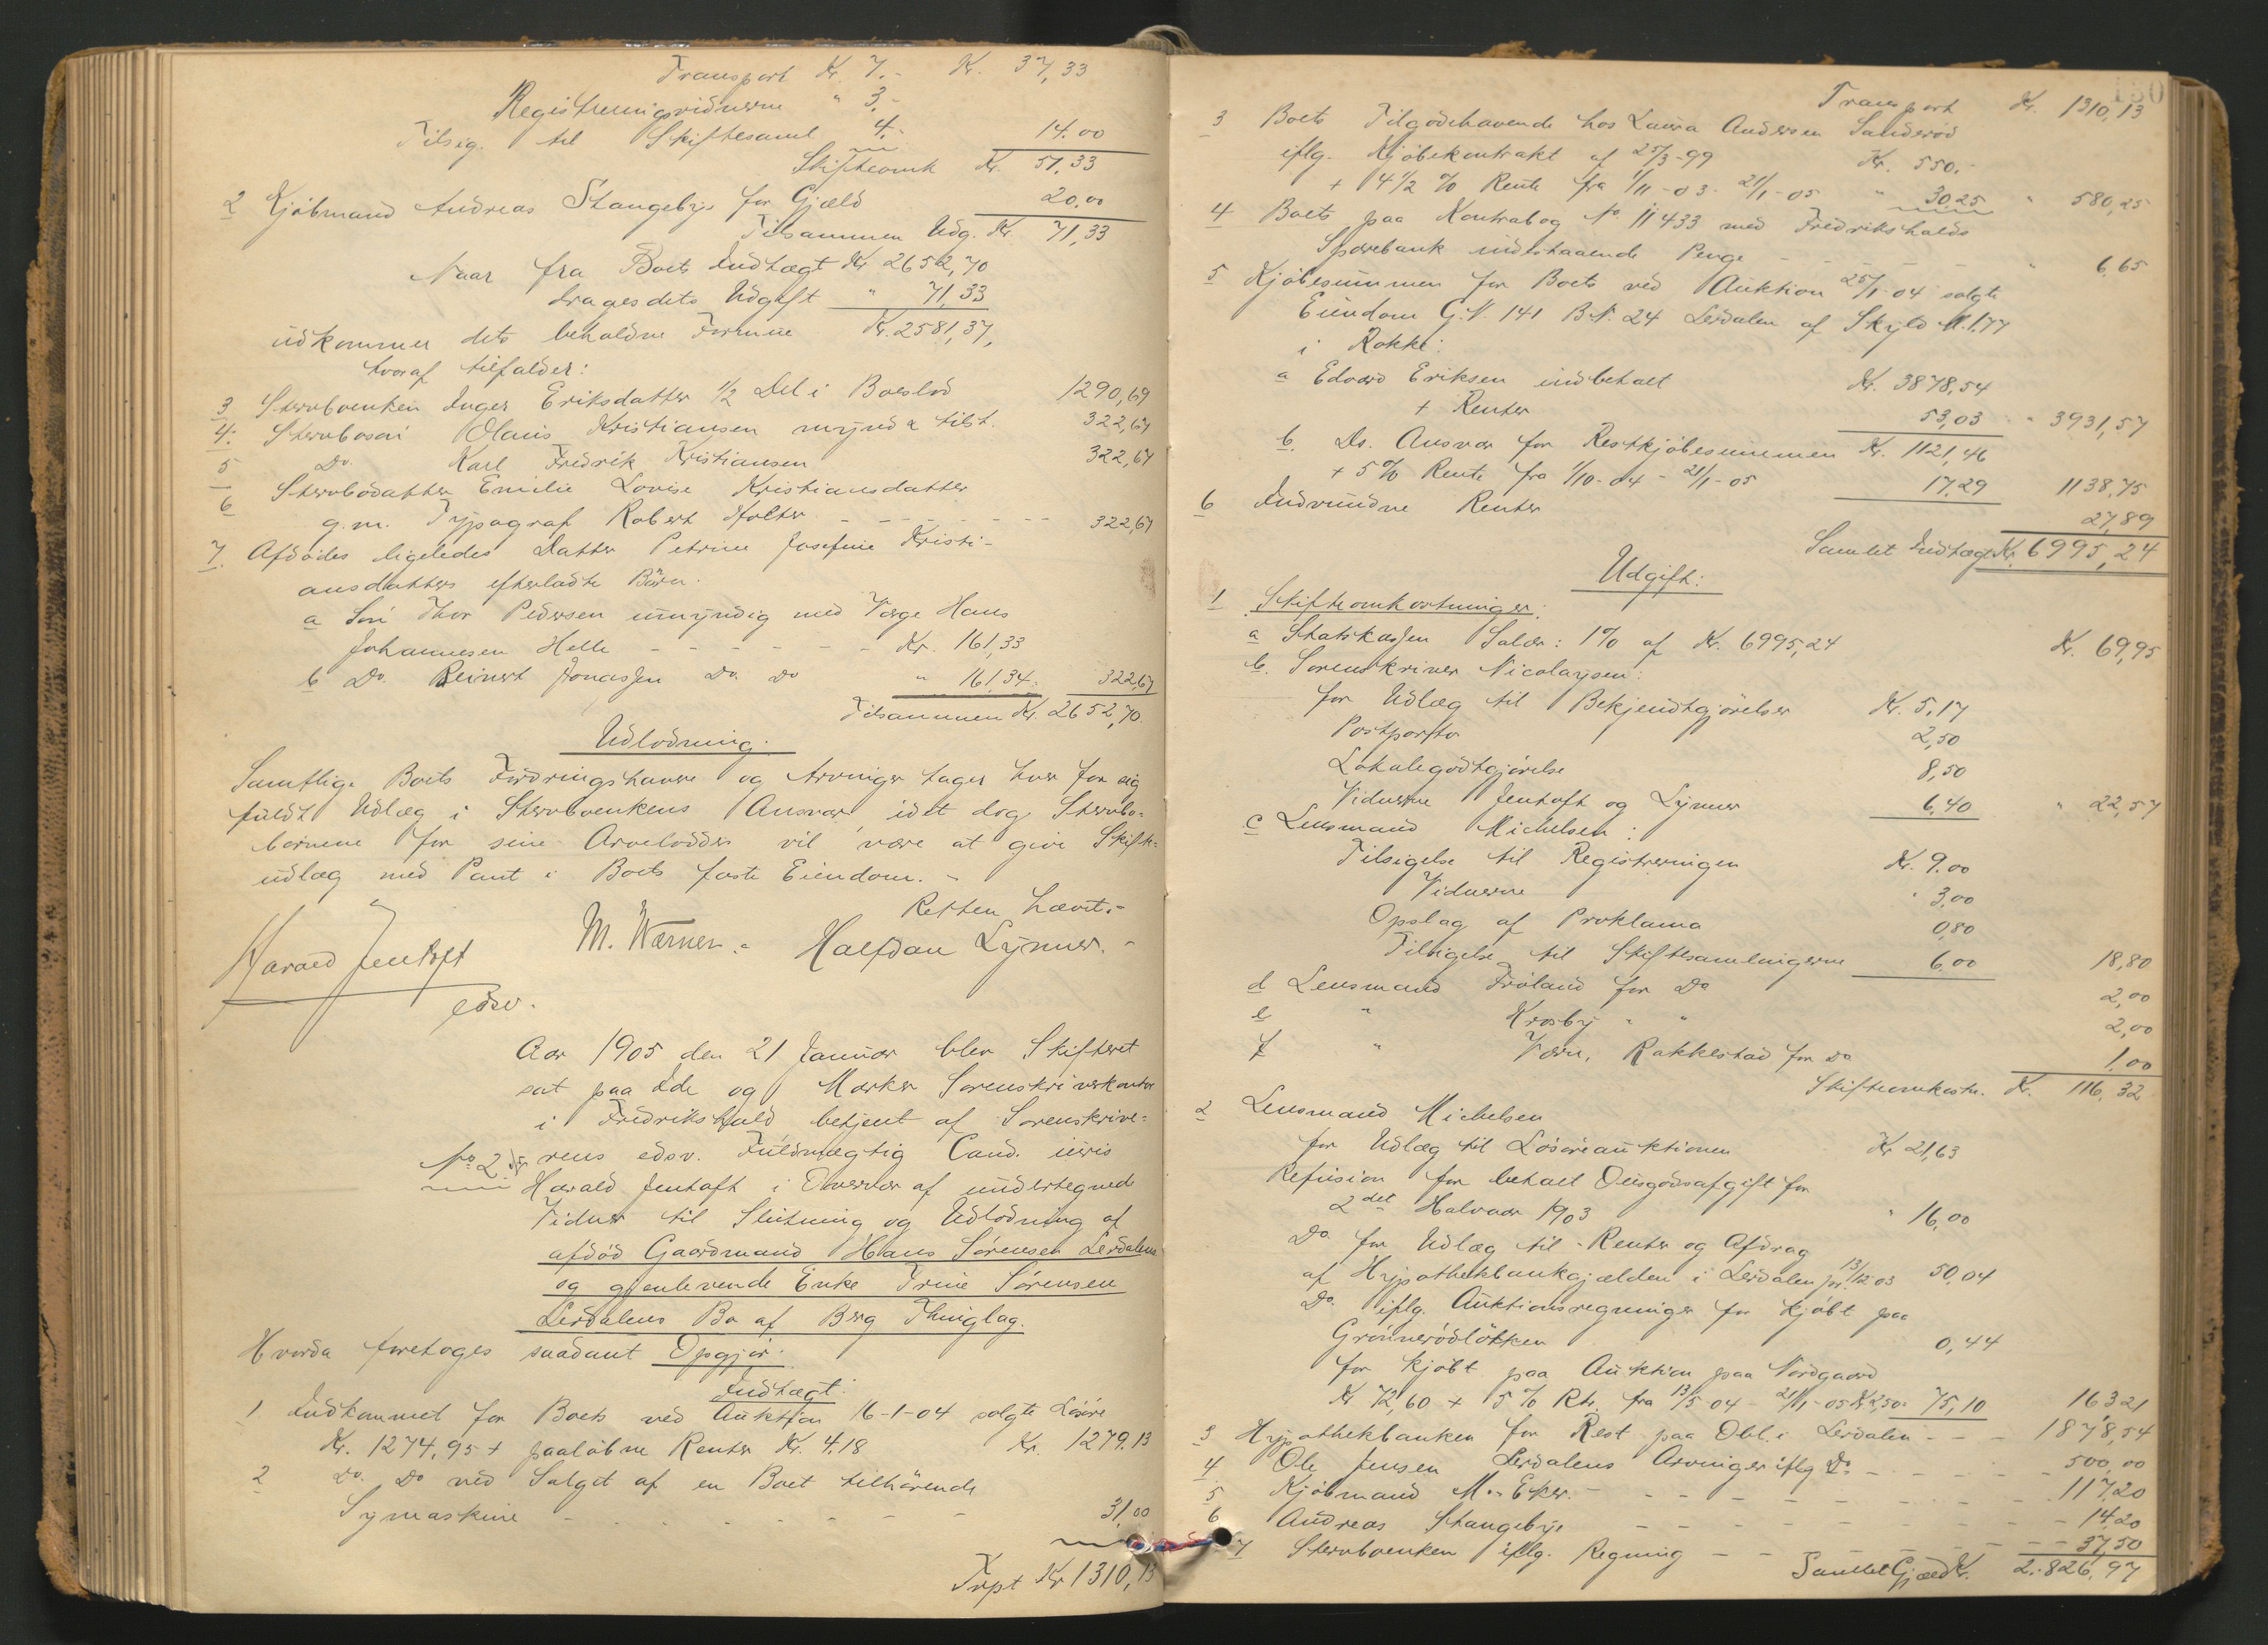 Transport Kr. 7.- Kr. 37,33
Registreringsvidnerne " 3,-
Tilsig. til Skiftesaml. 4.- 14.00
Skifteomk Kr. 51.33
2 Kjøbmand Andreas Stangebye for Gjæld 20.00
Tilsammen Udg. Kr. 71,33
Naar fra Boets Indtægt Kr 2652,70
drages dets Udgift " 71,33
udkommer dets beholdne Formue Kr. 2581,37,
hvoraf tilfalder:
3 Stervboenken Inger Eriksdatter 1/2 Del i Boeslod 1290,69
4. Stervbosøn Olaus Kristiansen mynd & tilst. 322,67
5 Do. Karl Fredrik Kristiansen 322,67
6 Stervbodatter Emilie Lovise Kristiansdatter
g.m. Typograf Robert Holter - - - - - - - 322,67
7. Afdødes ligeledes Datter Petrine Josefine Kristi-
ansdatters efterladte Børn.
a Søn Thor Pedersen umyndig med Værge Hans
Johannesen Helle - - - - - - Kr. 161,33
b Do. Reinert Jonassen Do. Do " 161,34. 322,67
Tilsammen Kr. 2652,70.
Udlodning.
Samtlige Boets Fordringshavere og Arvinger tager hver for sig
fuldt Udlæg i Stervboenkens Ansvar idet dog Stervbo-
børnene for sine Arvelodder vil være at give Skifte-
udlæg med Pant i Boets faste Eiendom. -
Retten hævet.-
Harald Jentoft M. Warner.- Halfdan Lynner.-
edsv.
Aar 1905 den 21 Januar blev Skifteret
sat paa Ide og Marker Sorenskriverkontor
i Fredrikshald betjent af Sorenskrive-
No 2 rens edsv. Fuldmægtig Cand. iuris
Harald Jentoft i Overvær af undertegnede
Vidner til Slutning og Udlodning af
afdød Gaardmand Hans Sørensen Lerdalens
og gjenlevende Enke Trine Sørensen
Lerdalens Bo af Berg Thinglag.
Hvorda foretoges saadant Opgjør:
Indtægt:
1 Indkommet for Boets ved Auktion 16-1-04 solgte Løsøre
Kr. 1274,95 + paaløbne Renter Kr. 4.18 Kr. 1279.13
2 Do. Do ved Salget af en Boet tilhørende
Symaskine - - - - - - - 31,00
Trpt Kr 1310,13
130
Transport Kr. 1310,13
3 Boets Tilgodehavende hos Laura Andersen Sanderød
iflg. Kjøbekontrakt af 25/3-99 Kr. 550.-
+ 4 1/2 % Rente fra 1/11-03 - 21/1-05 " 30,25 " 580,25
4 Boets paa Kontrabog No. 11433 med Fredrikshalds
Sparebank indestaaende Penge - - - - - " 6,65
5 Kjøbesummen for Boets ved Auktion 25/1-04 solgte
Eiendom G.N. 141 B.N. 24 Lerdalen af Skyld M. 1.77
i Rokke:
a Edvard Eriksen indbetalt Kr. 3878,54
+ Renter 53,03 " 3931,57
b. Ds. Ansvar for Restkjøbesummen Kr. 1121,46
+ 5 % Rente fra 1/10-04 - 21/1-05 17,29 1138,75
6 Indvundne Renter 27,89
Samlet Indtægt Kr. 6995,24
Udgift:
1 Skifteomkostninger:
a Statskassen Salær: 1% af Kr. 6995,24 Kr. 69,95
b. Sorenskriver Nicolaysen:
for Udlæg til Bekjendtgjørelser Kr. 5,17
Postporto 2,50
Lokalegodtgjørelse 8,50
Vidnerne Jentoft og Lynner 6,40 " 22,57
c Lensmand Michelsen:
Tilsigelse til Registreringen Kr. 9.00
Vidnerne " 3,00
Opslag af Proklama 0,80
Tilsigelse til Skiftesamlingerne 6,00 18,80
d Lensmand Frøland for Do 2,00
e " Krosby " " 2,00
f " Rakkestad for Do 1,00
Skifteomkostn. Kr. 116,32
2 Lensmand Michelsen
for Udlæg til Løsøreauktionen Kr 21,63
Refusion for betalt Ousgodsafgift for
2det Halvaar 1903 " 16,00
Do. for Udlæg til Renter og Afdrag
af Hypothekbankgjælden i Lerdalen pr. 13/12 03 50,04
Do. iflg. Auktionsregninger for kjøbt paa
Grønnerødløkken 0,44
for kjøbt paa Auktion paa Nordgaard
Kr 72,60 + 5% Rte. fra 13/5 04 - 21/1-05 Kr 2,50 75,10 163,21
3 Hypothekbanken for Rest paa Obl. i Lerdalen - - - 1878,54
4 Ole Jensen Lerdalens Arvinger iflg Do - - - - - 500,00
5 Kjøbmand M. Eker. - - - - - - - - 117,20
6 Andreas Stangebye - - - - - - - 14,20
7 Stervboenken iflg. Regning - - - - - 37,50
Samlet Gjæld Kr. 2.826,97